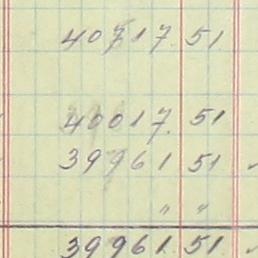 40717 51
40017. 51
39961 51
" "
39961. 51.